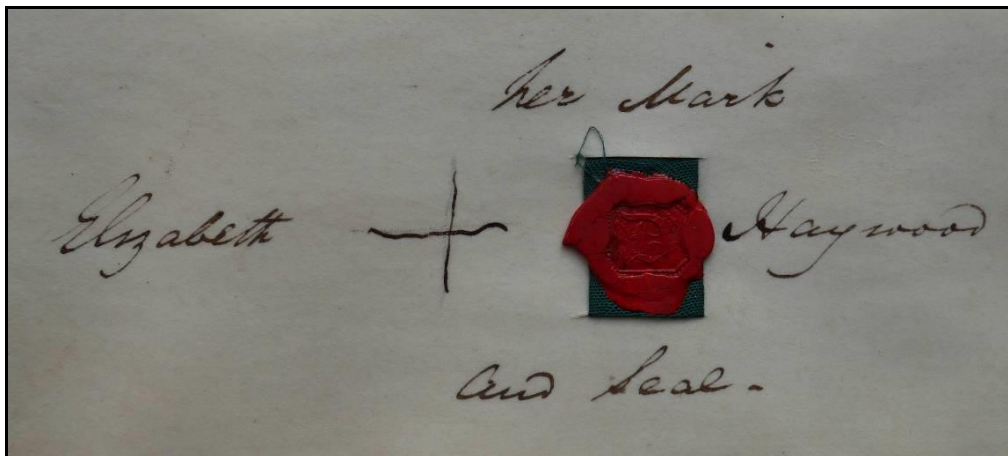 her Mark
Elizabeth Haywood
and Seal -